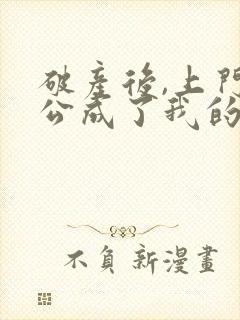 破產後,上門
公成了我的
不負新漫畫